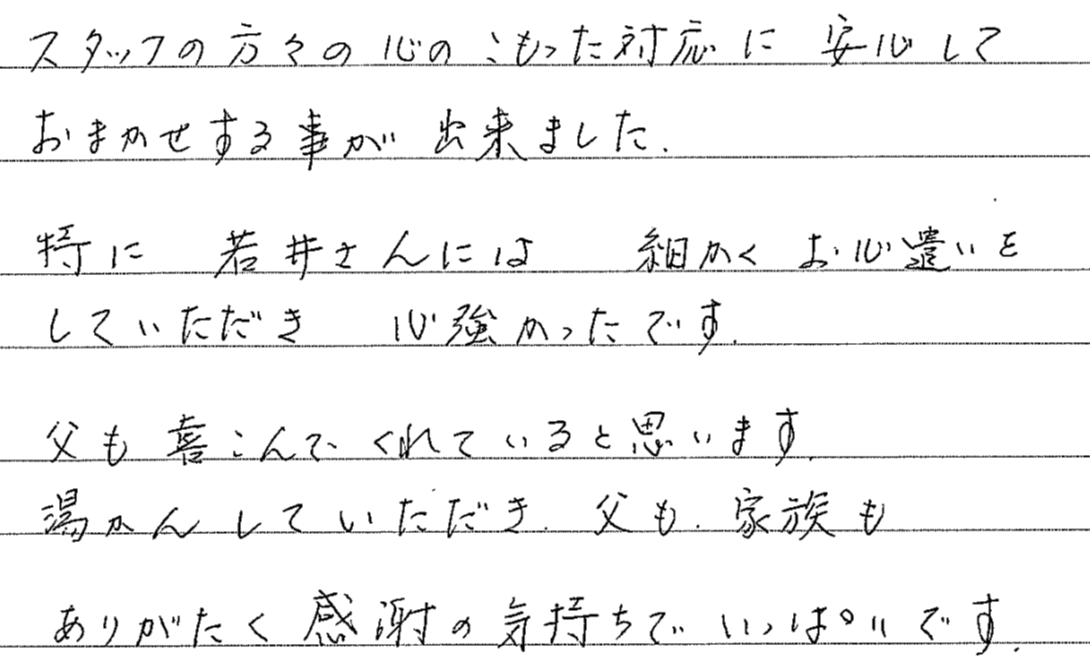 スタッフの方々の心のこもった対応に 安心して
おまかせする事が 出来ました.
特に 若井さんには 細かく お心遣いを
していただき 心強かったです.
父も喜こんでくれていると思います.
湯かんしていただき. 父も. 家族も
ありがたく感謝の気持ちでいっぱいです.